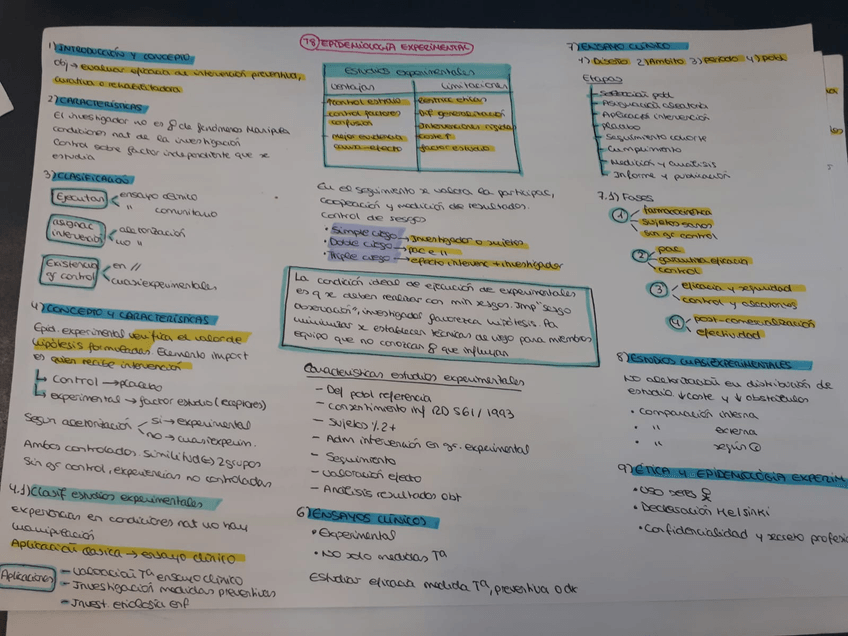 1) INTRODUCCIÓN Y CONCEPTO
obj → evaluar eficacia de intervención preventiva,
curativa o rehabilitadora
2) CARACTERÍSTICAS
El investigador no es de fenómenos Manipula
condiciones nat de la investigación
Control sobre factor independiente que se
estudia
3) CLASIFICACIÓN
Ejecutan
ensayo clínico
" comunitario
asignac
intervención
aleatorización
no "
Existencia
gr control
en //
cuasiexperimentales
4) CONCEPTO Y CARACTERÍSTICAS
Epid. experimental verifica el valor de
hipótesis formuladas. Elemento import
es quien recibe intervención
↳ control → placebo
↳ experimental → factor estudio
Según aletorización
si → experimental
no → cuasiexperim.
Ambos controlados. similit 2 grupos
Sin gr control, experiencias no controladas
4.1) Clasif estudios experimentales
experiencias en condiciones nat no hay
manipulación
Aplicación clásica → ensayo clínico
Aplicaciones
- valoración Tª ensayo clínico
- Investigación medidas preventivas
- Invest. etiología enf
18) EPIDEMIOLOGÍA EXPERIMENTAL
Estudios experimentales
ventajas
limitaciones
control estudio
control factores
confusión
mejor evidencia
causa-efecto
generalización
Intervenciones rígidas
coste ↑
factor estudio
En el seguimiento se valora la participac,
cooperación y medición de resultados.
Control de sesgos
• Simple ciego → Investigador o sujetos
• Doble ciego → pac e "
• Triple ciego → efecto intervenc + investigador
La condición ideal de ejecución de experimentales
es q se deben realizar con min sesgos. Imp "sesgo
observación", investigador favorezca hipótesis. Pa
minimizar se establecen técnicas de ciego para miembros
equipo que no conozcan q que influyan
Características estudios experimentales
- Def pobl referencia
- Consentimiento inf RD 561/1993
- Sujetos
- Adm intervención en gr. experimental
- Seguimiento
- valoración efecto
- Análisis resultados obt
6) ENSAYOS CLÍNICOS
• Experimental
• No solo medidas Tª
Estudiar eficacia medida Tª, preventiva o dx
7) ENSAYO CLÍNICO
1) Diseño 2) Ámbito 3) periodo 4) pobl
Etapas
- Selección pobl
- Asignación aleatoria
- Aplicación intervención
- placebo
- Seguimiento cohorte
- Cumplimiento
- Medición y análisis
- Informe y publicación
7.1) Fases
1
farmacocinética
sujetos sanos
sin gr control
2
pac
eficacia
control
3
eficacia y seguridad
control y aleatorios
4
post-comercialización
efectividad
8) ESTUDIOS CUASIEXPERIMENTALES
NO aletorización en distribución de
estudio ↓ coste y ↓ obstáculos
• Comparación interna
• " externa
• " según
9) ÉTICA Y EPIDEMIOLOGÍA EXPERIM
• USO seres
• Declaración Helsinki
• Confidencialidad y secreto profesi